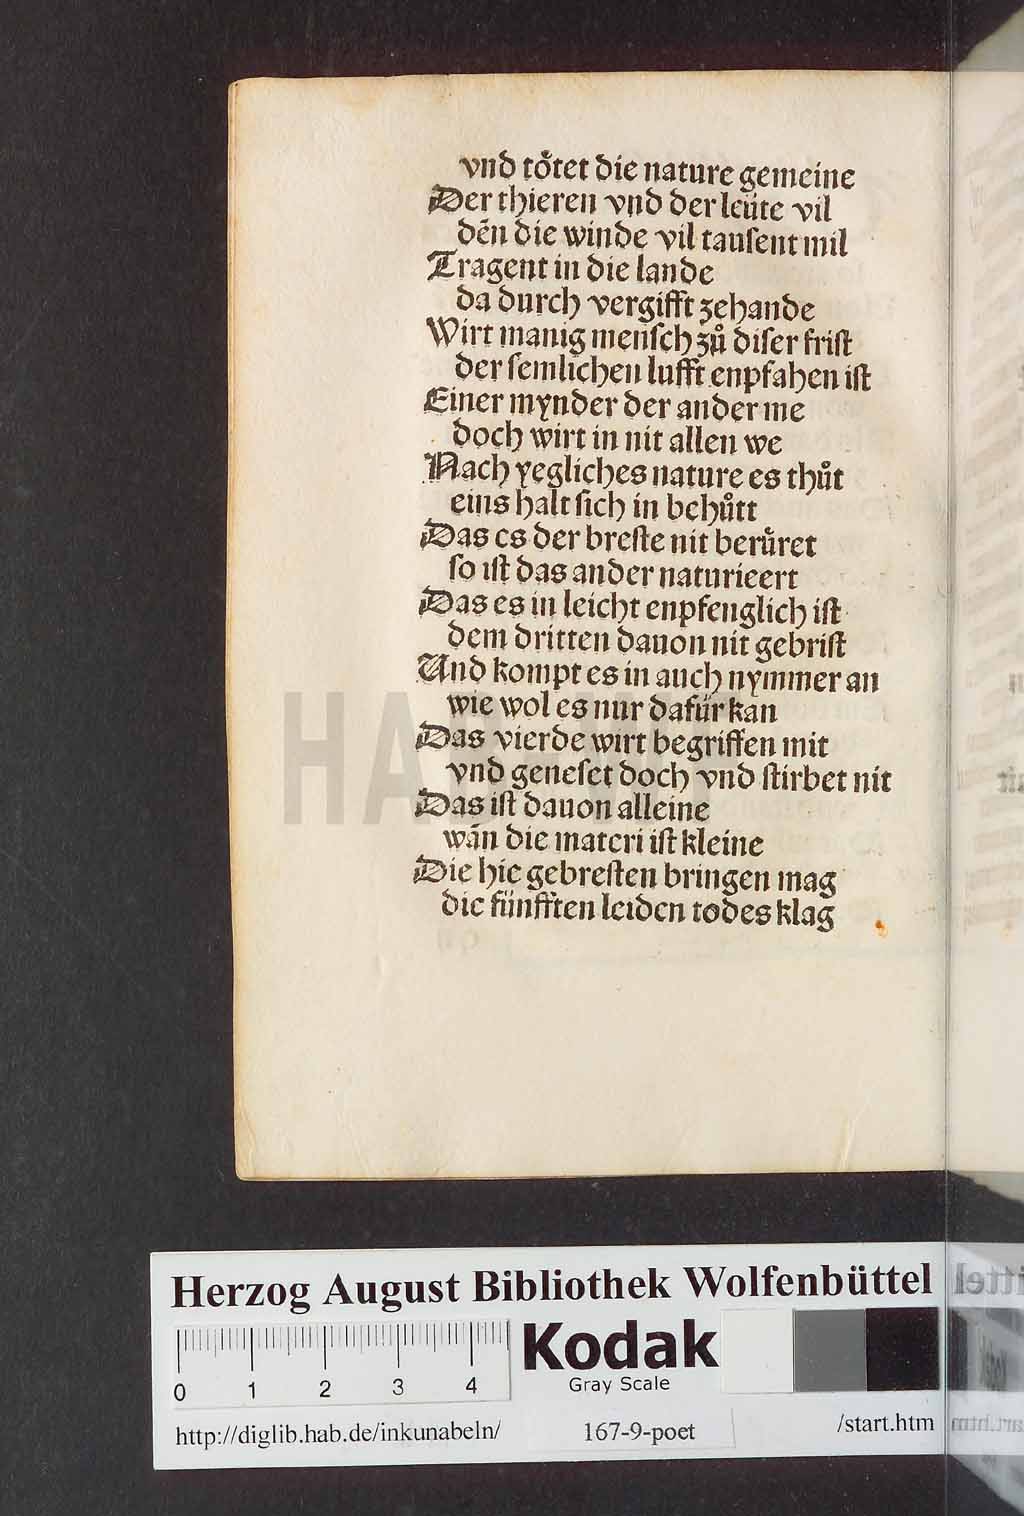 vnd toͤtet die nature gemeine
Der thieren vnd der leüte vil
deñ die winde vil tauſent mil
Tragent in die lande
da durch vergifft zehande
Wirt manig menſch zuͦ diſer friſt
der ſemlichen lufft enpfahen iſt
Einer mynder der ander me
doch wirt in nit allen we
Nach yegliches nature es thuͦt
eins halt ſich in behuͦtt
Das es der breſte nit beruͤret
ſo iſt das ander naturieert
Das es in leicht enpfenglich iſt
dem dritten dauon nit gebriſt
Und kompt es in auch nymmer an
wie wol es nur dafür kan
Das vierde wirt begriffen mit
vnd geneſet doch vnd ſtirbet nit
Das iſt dauon alleine
wañ die materi iſt kleine
Die hie gebreſten bringen mag
die fünfften leiden todes klag
HAB
Herzog August Bibliothek Wolfenbüttel
0 1 2 3 4
Kodak
Gray Scale
http://diglib.hab.de/inkunabeln/ 167-9-poet /start.htm